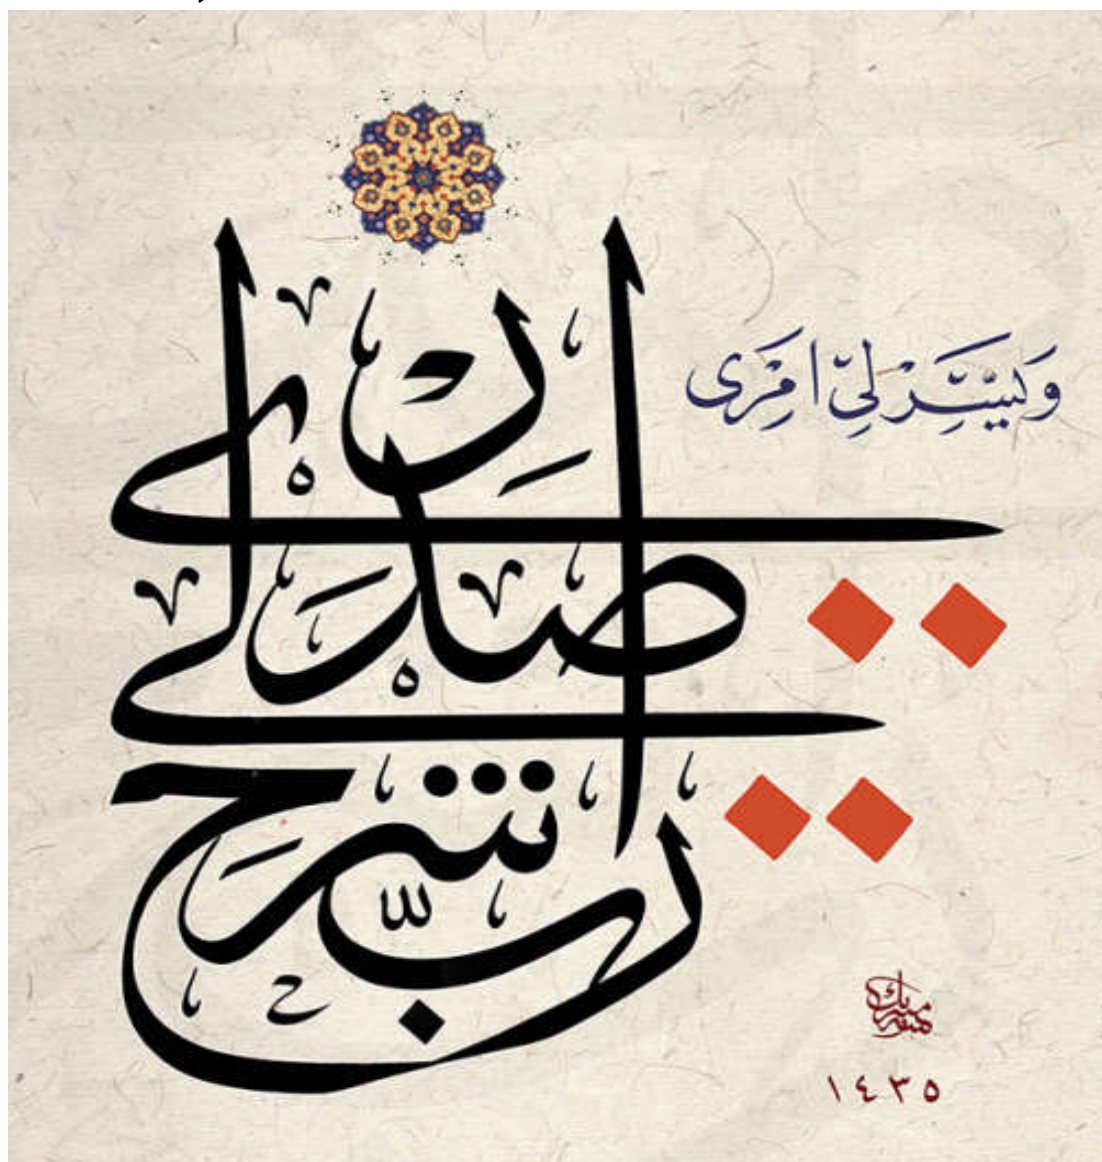 رَبِّ اشْرَحْ لِي صَدْرِي
وَيَسِّرْ لِيٓ اَمْرِى
١٤٣٥